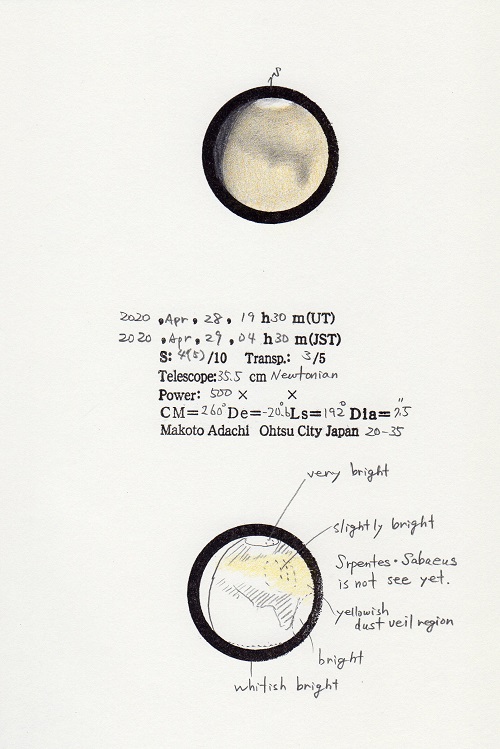 S
2020, Apr, 28, 19 h 30 m(UT)
2020, Apr, 29, 04 h 30 m(JST)
S: 4(5)/10 Transp.: 3/5
Telescope: 35.5 cm Newtonian
Power: 500 × ×
CM=260° De=-20.6 Ls=192° Dia=7.5"
Makoto Adachi Ohtsu City Japan 20-35
very bright
slightly bright
Srpentes·Sabaeus
is not see yet.
yellowish
dust veil region
bright
whitish bright